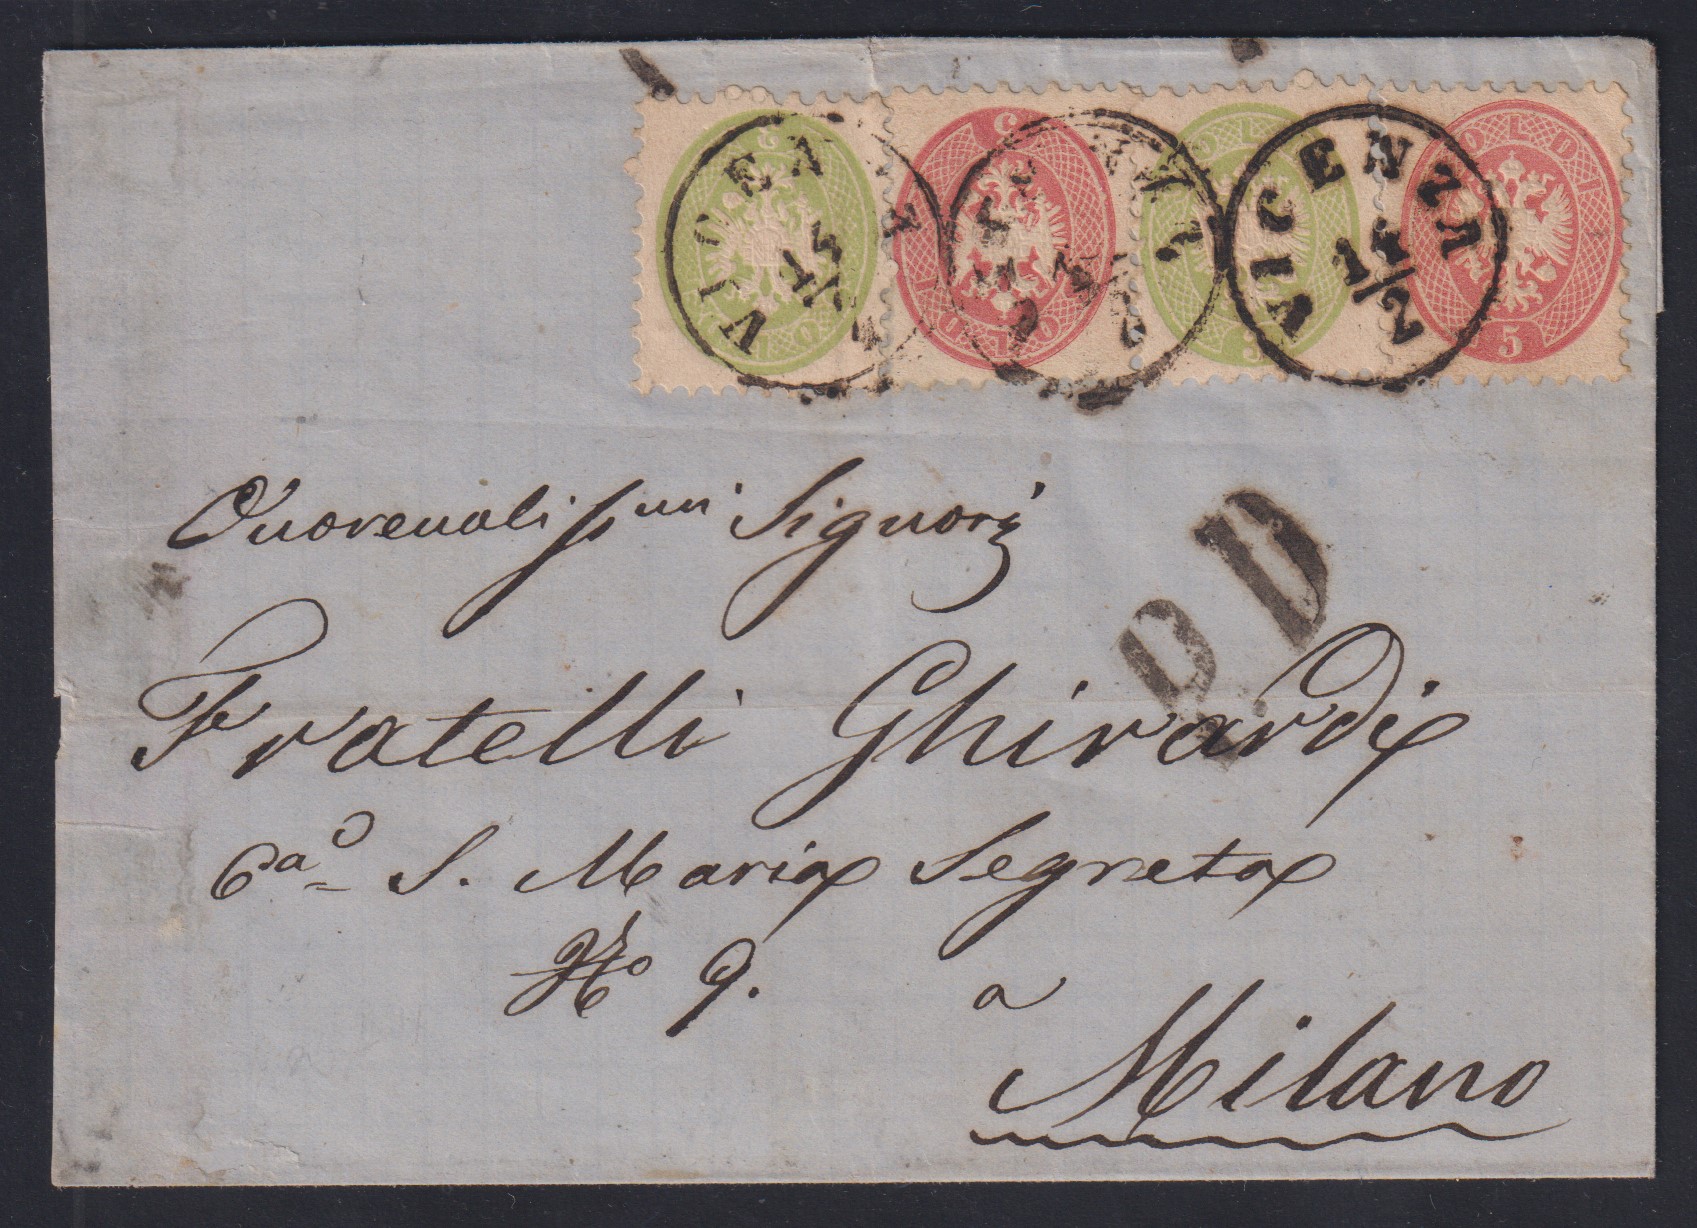 VICENZA
14/2
VICENZA
14/2
SOLDI
5
DD
Onorevolissimi Signori
Fratelli Ghirardi
Cao S. Maria Segreta
No 9.
a
Milano